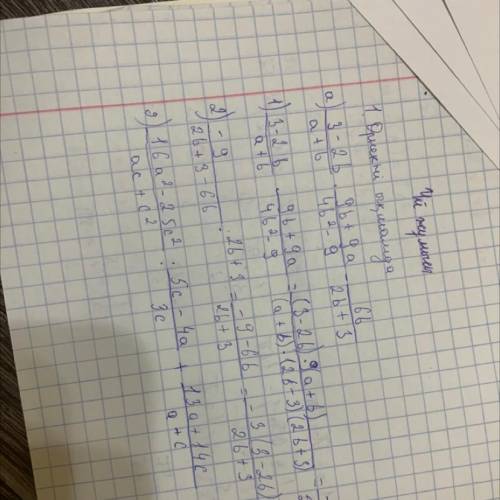 Үй жұмысы
1. Өрнекті ықшамда
а) \frac{3-2b}{a+b} · \frac{9b+9a}{4b²-9} - \frac{6b}{2b+3}
1) \frac{3-2b}{a+b} · \frac{9b+9a}{4b²-9} = \frac{(3-2b) · 9(a+b)}{(a+b) · (2b-3)(2b+3)} = -
2) \frac{-9}{2b+3} - \frac{6b}{2b+3} = \frac{-9-6b}{2b+3} = - \frac{3(3-2b)}{2b+3}
2) \frac{16a²-25c²}{ac+c²} : \frac{5c-4a}{3c} + \frac{13a+14c}{a+c}